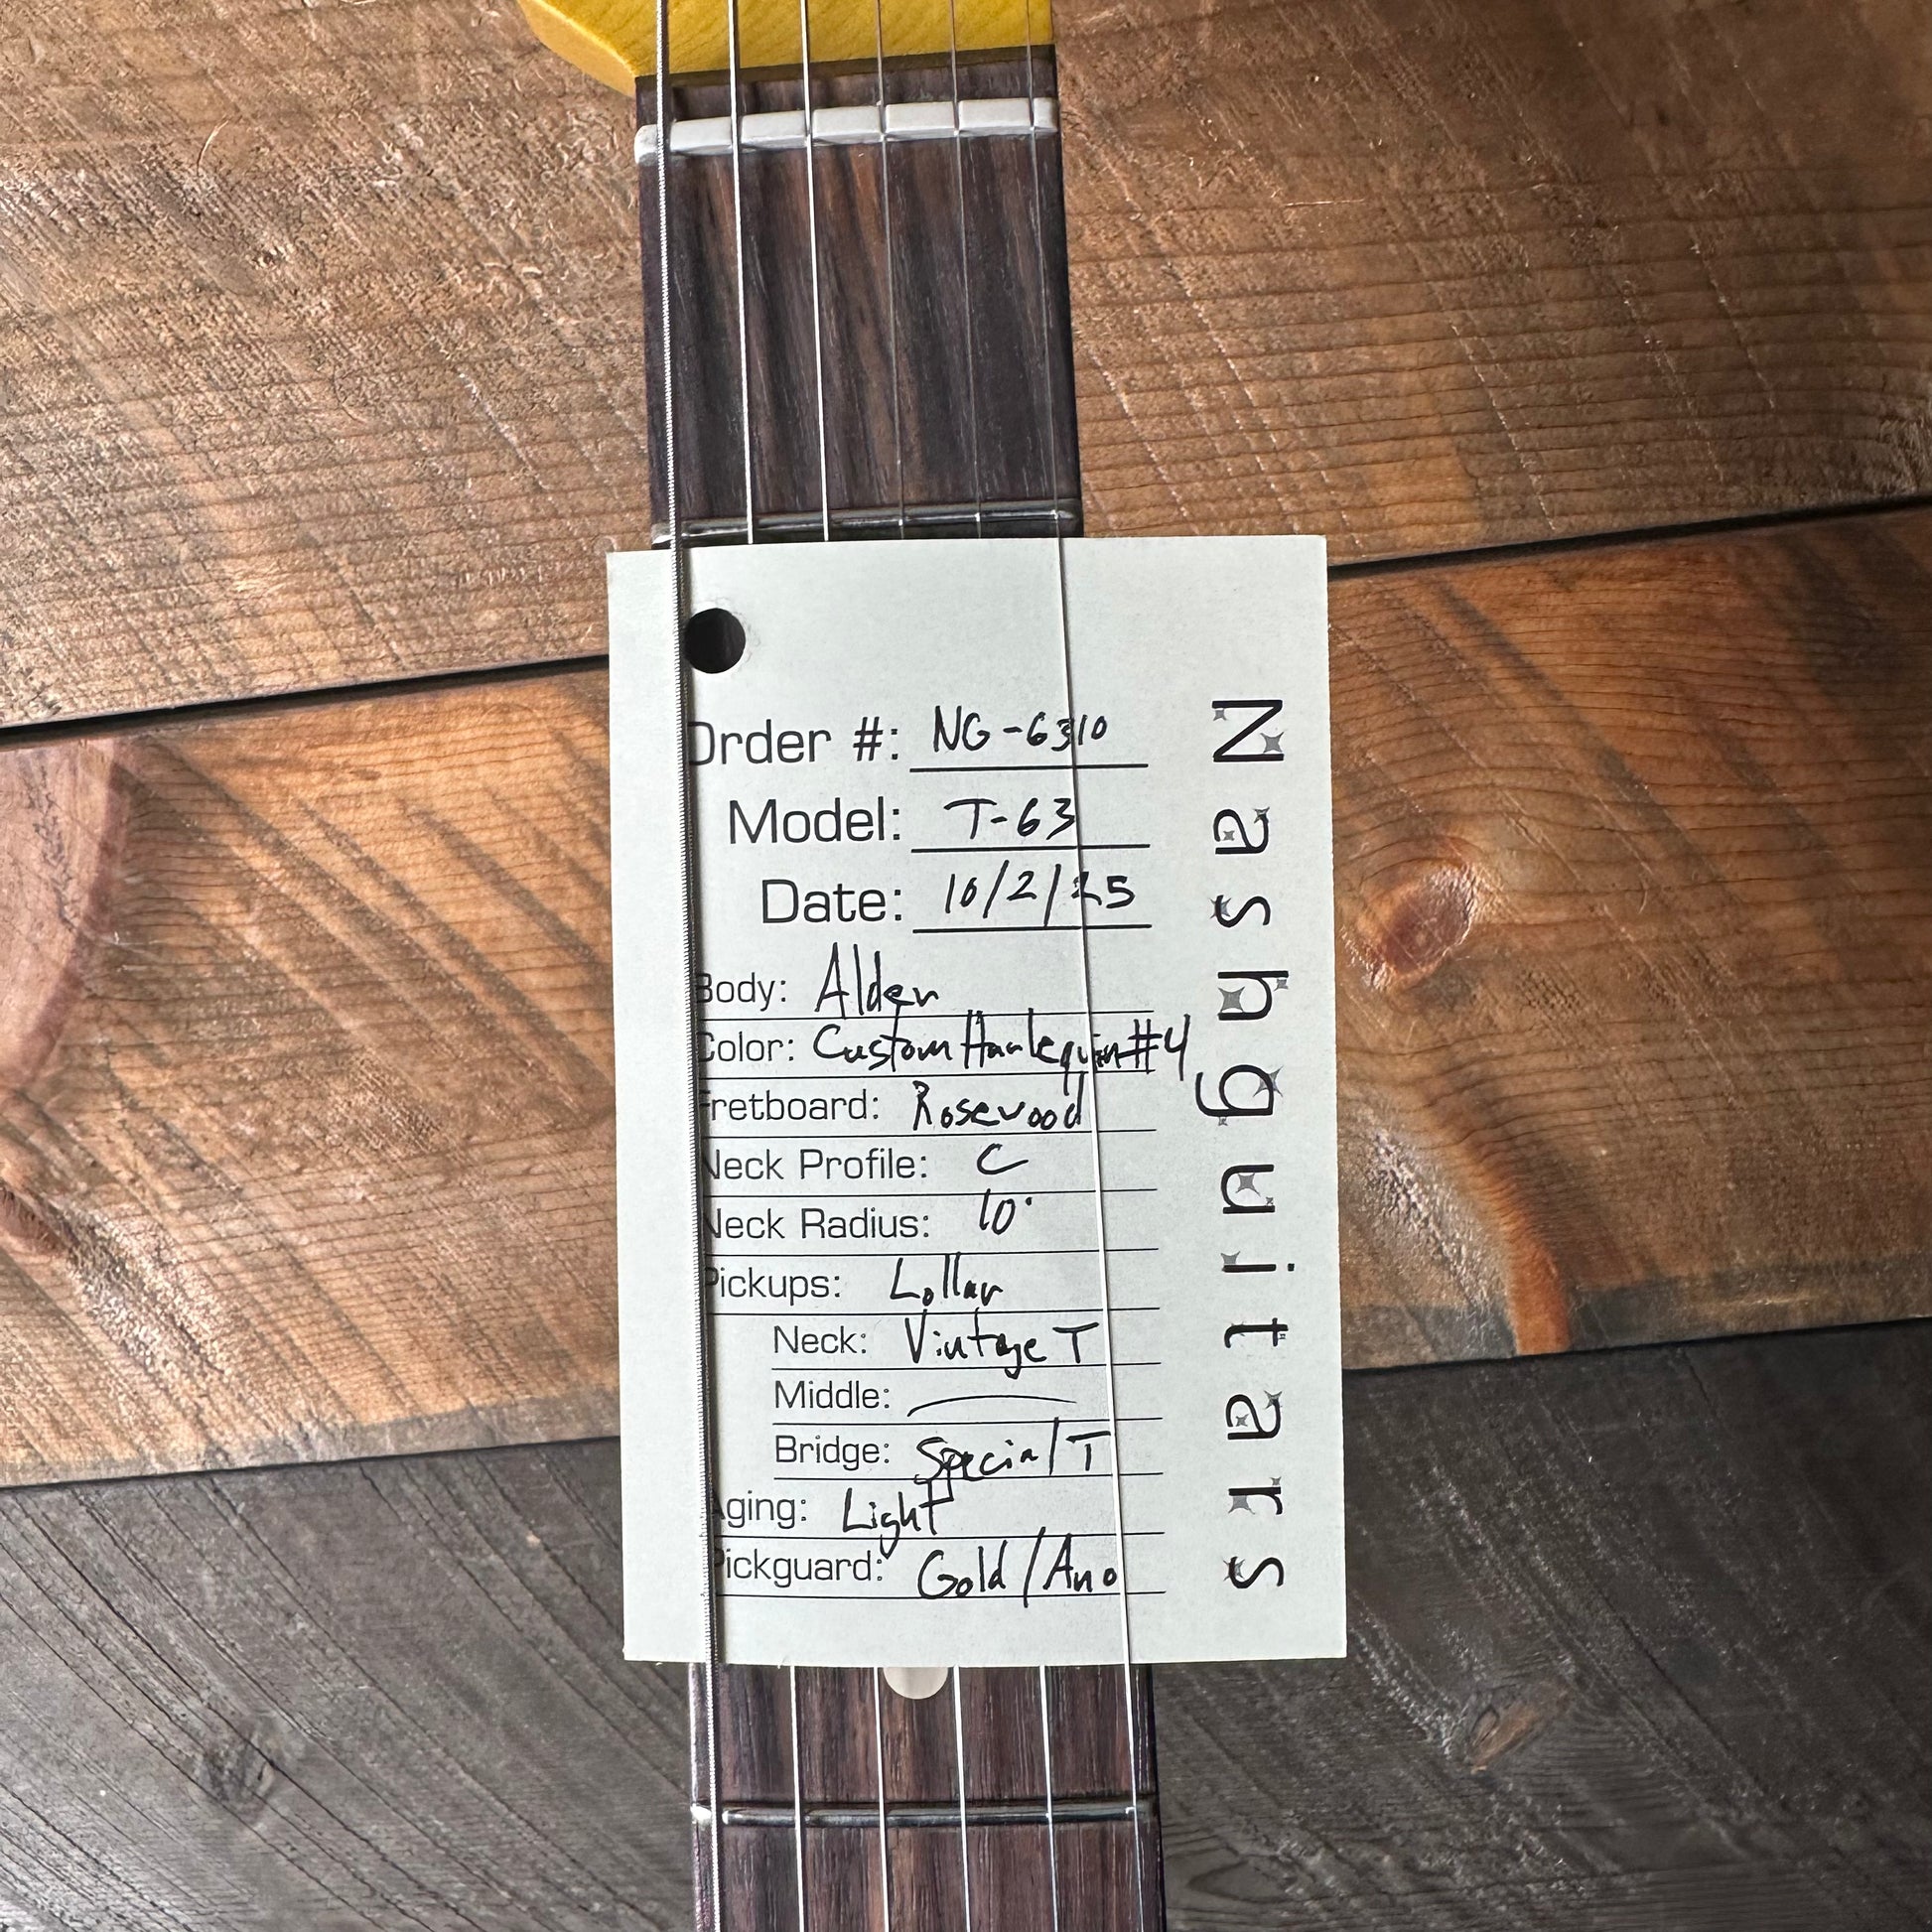 Order #: NG-6310
Model: T-63
Date: 10/2/25
Body: Alder
Color: Custom Harlequin #4
Fretboard: Rosewood
Neck Profile: C
Neck Radius: 10"
Pickups: Lollar
Neck: Vintage T
Middle: —
Bridge: Special T
Aging: Light
Pickguard: Gold/Ano
Nashguitars